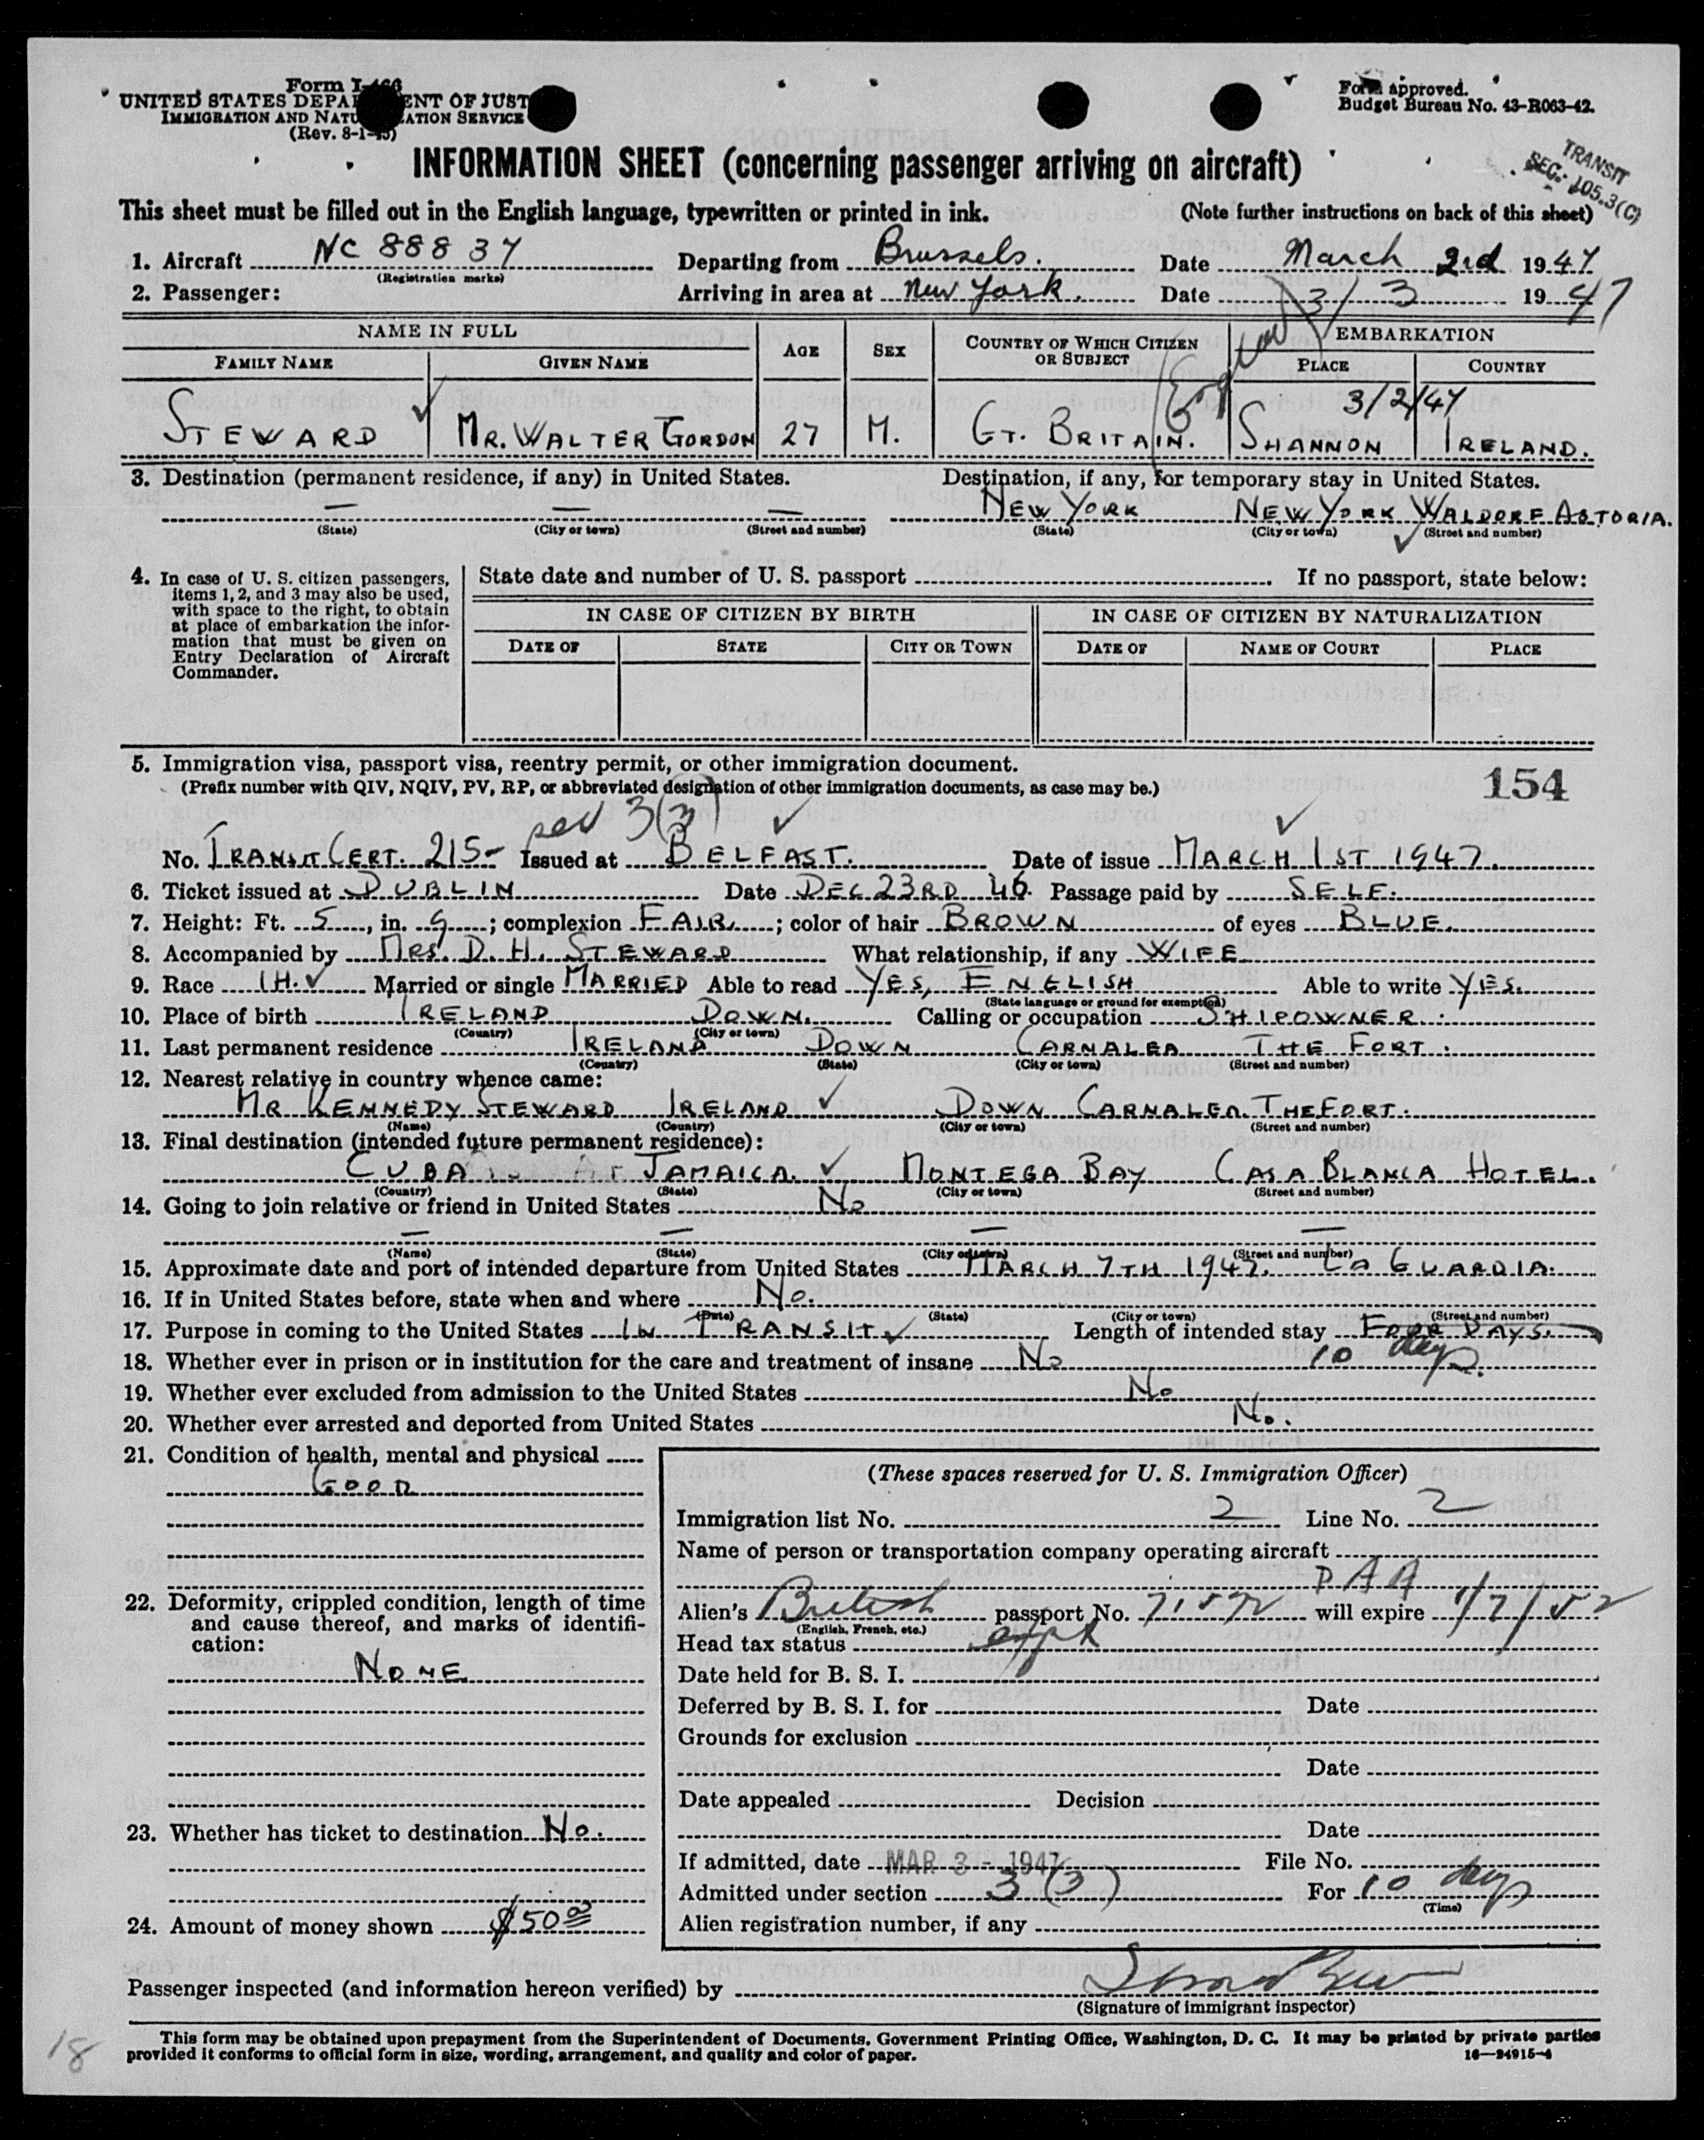 Form I-466
UNITED STATES DEPARTMENT OF JUSTICE
IMMIGRATION AND NATURALIZATION SERVICE
(Rev. 8-1-45)
Form approved.
Budget Bureau No. 43-R063-42.
INFORMATION SHEET (concerning passenger arriving on aircraft)
TRANSIT
SEC. 105.3(C)
This sheet must be filled out in the English language, typewritten or printed in ink. (Note further instructions on back of this sheet)
1. Aircraft NC 88837 Departing from Brussels. Date March 2nd 1947
(Registration marks)
2. Passenger: Arriving in area at New York. Date 3/3 1947
NAME IN FULL AGE SEX COUNTRY OF WHICH CITIZEN OR SUBJECT EMBARKATION
FAMILY NAME GIVEN NAME PLACE COUNTRY
(England)
3/2/47
STEWARD MR. WALTER GORDON 27 M. GT. BRITAIN. SHANNON IRELAND.
3. Destination (permanent residence, if any) in United States. Destination, if any, for temporary stay in United States.
— — — NEW YORK NEW YORK WALDORF ASTORIA.
(State) (City or town) (Street and number) (State) (City or town) (Street and number)
4. In case of U. S. citizen passengers, items 1, 2, and 3 may also be used, with space to the right, to obtain at place of embarkation the information that must be given on Entry Declaration of Aircraft Commander.
State date and number of U. S. passport If no passport, state below:
IN CASE OF CITIZEN BY BIRTH IN CASE OF CITIZEN BY NATURALIZATION
DATE OF STATE CITY OR TOWN DATE OF NAME OF COURT PLACE
5. Immigration visa, passport visa, reentry permit, or other immigration document.
(Prefix number with QIV, NQIV, PV, RP, or abbreviated designation of other immigration documents, as case may be.)
154
3(3)
No. TRANSIT CERT. 215- Issued at BELFAST. Date of issue MARCH 1ST 1947.
6. Ticket issued at DUBLIN Date DEC 23RD 46. Passage paid by SELF.
7. Height: Ft. 5, in. 9; complexion FAIR; color of hair BROWN of eyes BLUE.
8. Accompanied by MRS. D. H. STEWARD What relationship, if any WIFE
9. Race IH. Married or single MARRIED Able to read YES, ENGLISH Able to write YES.
(State language or ground for exemption)
10. Place of birth IRELAND DOWN. Calling or occupation SHIPOWNER.
(Country) (City or town)
11. Last permanent residence IRELAND DOWN CARNALEA THE FORT.
(Country) (State) (City or town) (Street and number)
12. Nearest relative in country whence came:
MR KENNEDY STEWARD IRELAND DOWN CARNALEA. THE FORT.
(Name) (Country) (City or town) (Street and number)
13. Final destination (intended future permanent residence):
CUBA JAMAICA. MONTEGA BAY CASA BLANCA HOTEL.
(Country) (State) (City or town) (Street and number)
14. Going to join relative or friend in United States No
— — — —
(Name) (State) (City or town) (Street and number)
15. Approximate date and port of intended departure from United States MARCH 7TH 1947. LA GUARDIA.
16. If in United States before, state when and where No.
(Date) (State) (City or town) (Street and number)
17. Purpose in coming to the United States IN TRANSIT Length of intended stay FOUR DAYS.
10 days.
18. Whether ever in prison or in institution for the care and treatment of insane No
19. Whether ever excluded from admission to the United States No
20. Whether ever arrested and deported from United States No.
21. Condition of health, mental and physical
GOOD
22. Deformity, crippled condition, length of time and cause thereof, and marks of identification:
NONE
23. Whether has ticket to destination No.
24. Amount of money shown $50.00
(These spaces reserved for U. S. Immigration Officer)
Immigration list No. 2 Line No. 2
Name of person or transportation company operating aircraft
PAA
Alien's British passport No. 71572 will expire 1/7/52
(English, French, etc.)
Head tax status expt
Date held for B. S. I.
Deferred by B. S. I. for Date
Grounds for exclusion
Date
Date appealed Decision
Date
If admitted, date MAR 3 - 1947 File No.
Admitted under section 3(3) For 10 days
(Time)
Alien registration number, if any
Passenger inspected (and information hereon verified) by
(Signature of immigrant inspector)
This form may be obtained upon prepayment from the Superintendent of Documents, Government Printing Office, Washington, D. C. It may be printed by private parties
provided it conforms to official form in size, wording, arrangement, and quality and color of paper.
16—24915-4
18